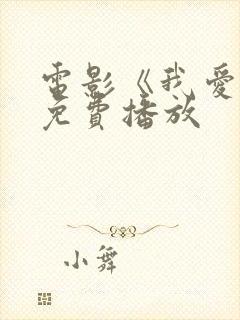 電影《我愛
免費播放
小舞